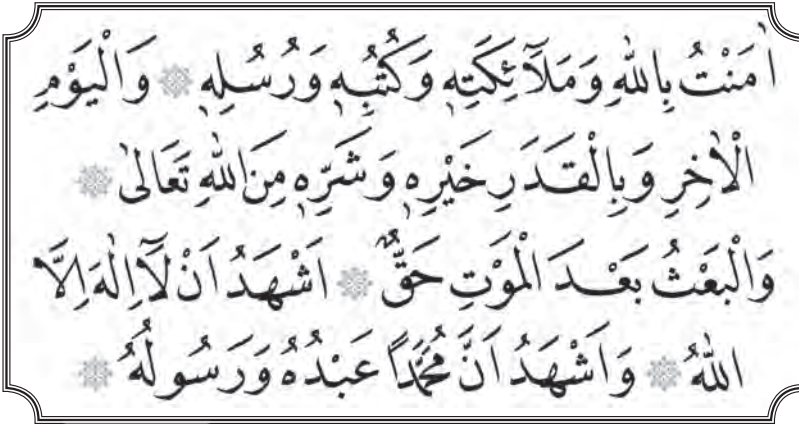 اٰمَنْتُ بِاللّٰهِ وَمَلَآئِكَتِهٖ وَكُتُبِهٖ وَرُسُلِهٖ ۞ وَالْيَوْمِ
الْاٰخِرِ وَبِالْقَدَرِ خَيْرِهٖ وَشَرِّهٖ مِنَ اللّٰهِ تَعَالٰى ۞
وَالْبَعْثُ بَعْدَ الْمَوْتِ حَقٌّ ۞ اَشْهَدُ اَنْ لَآ اِلٰهَ اِلَّا
اللّٰهُ ۞ وَاَشْهَدُ اَنَّ مُحَمَّدًا عَبْدُهُ وَرَسُولُهُ ۞